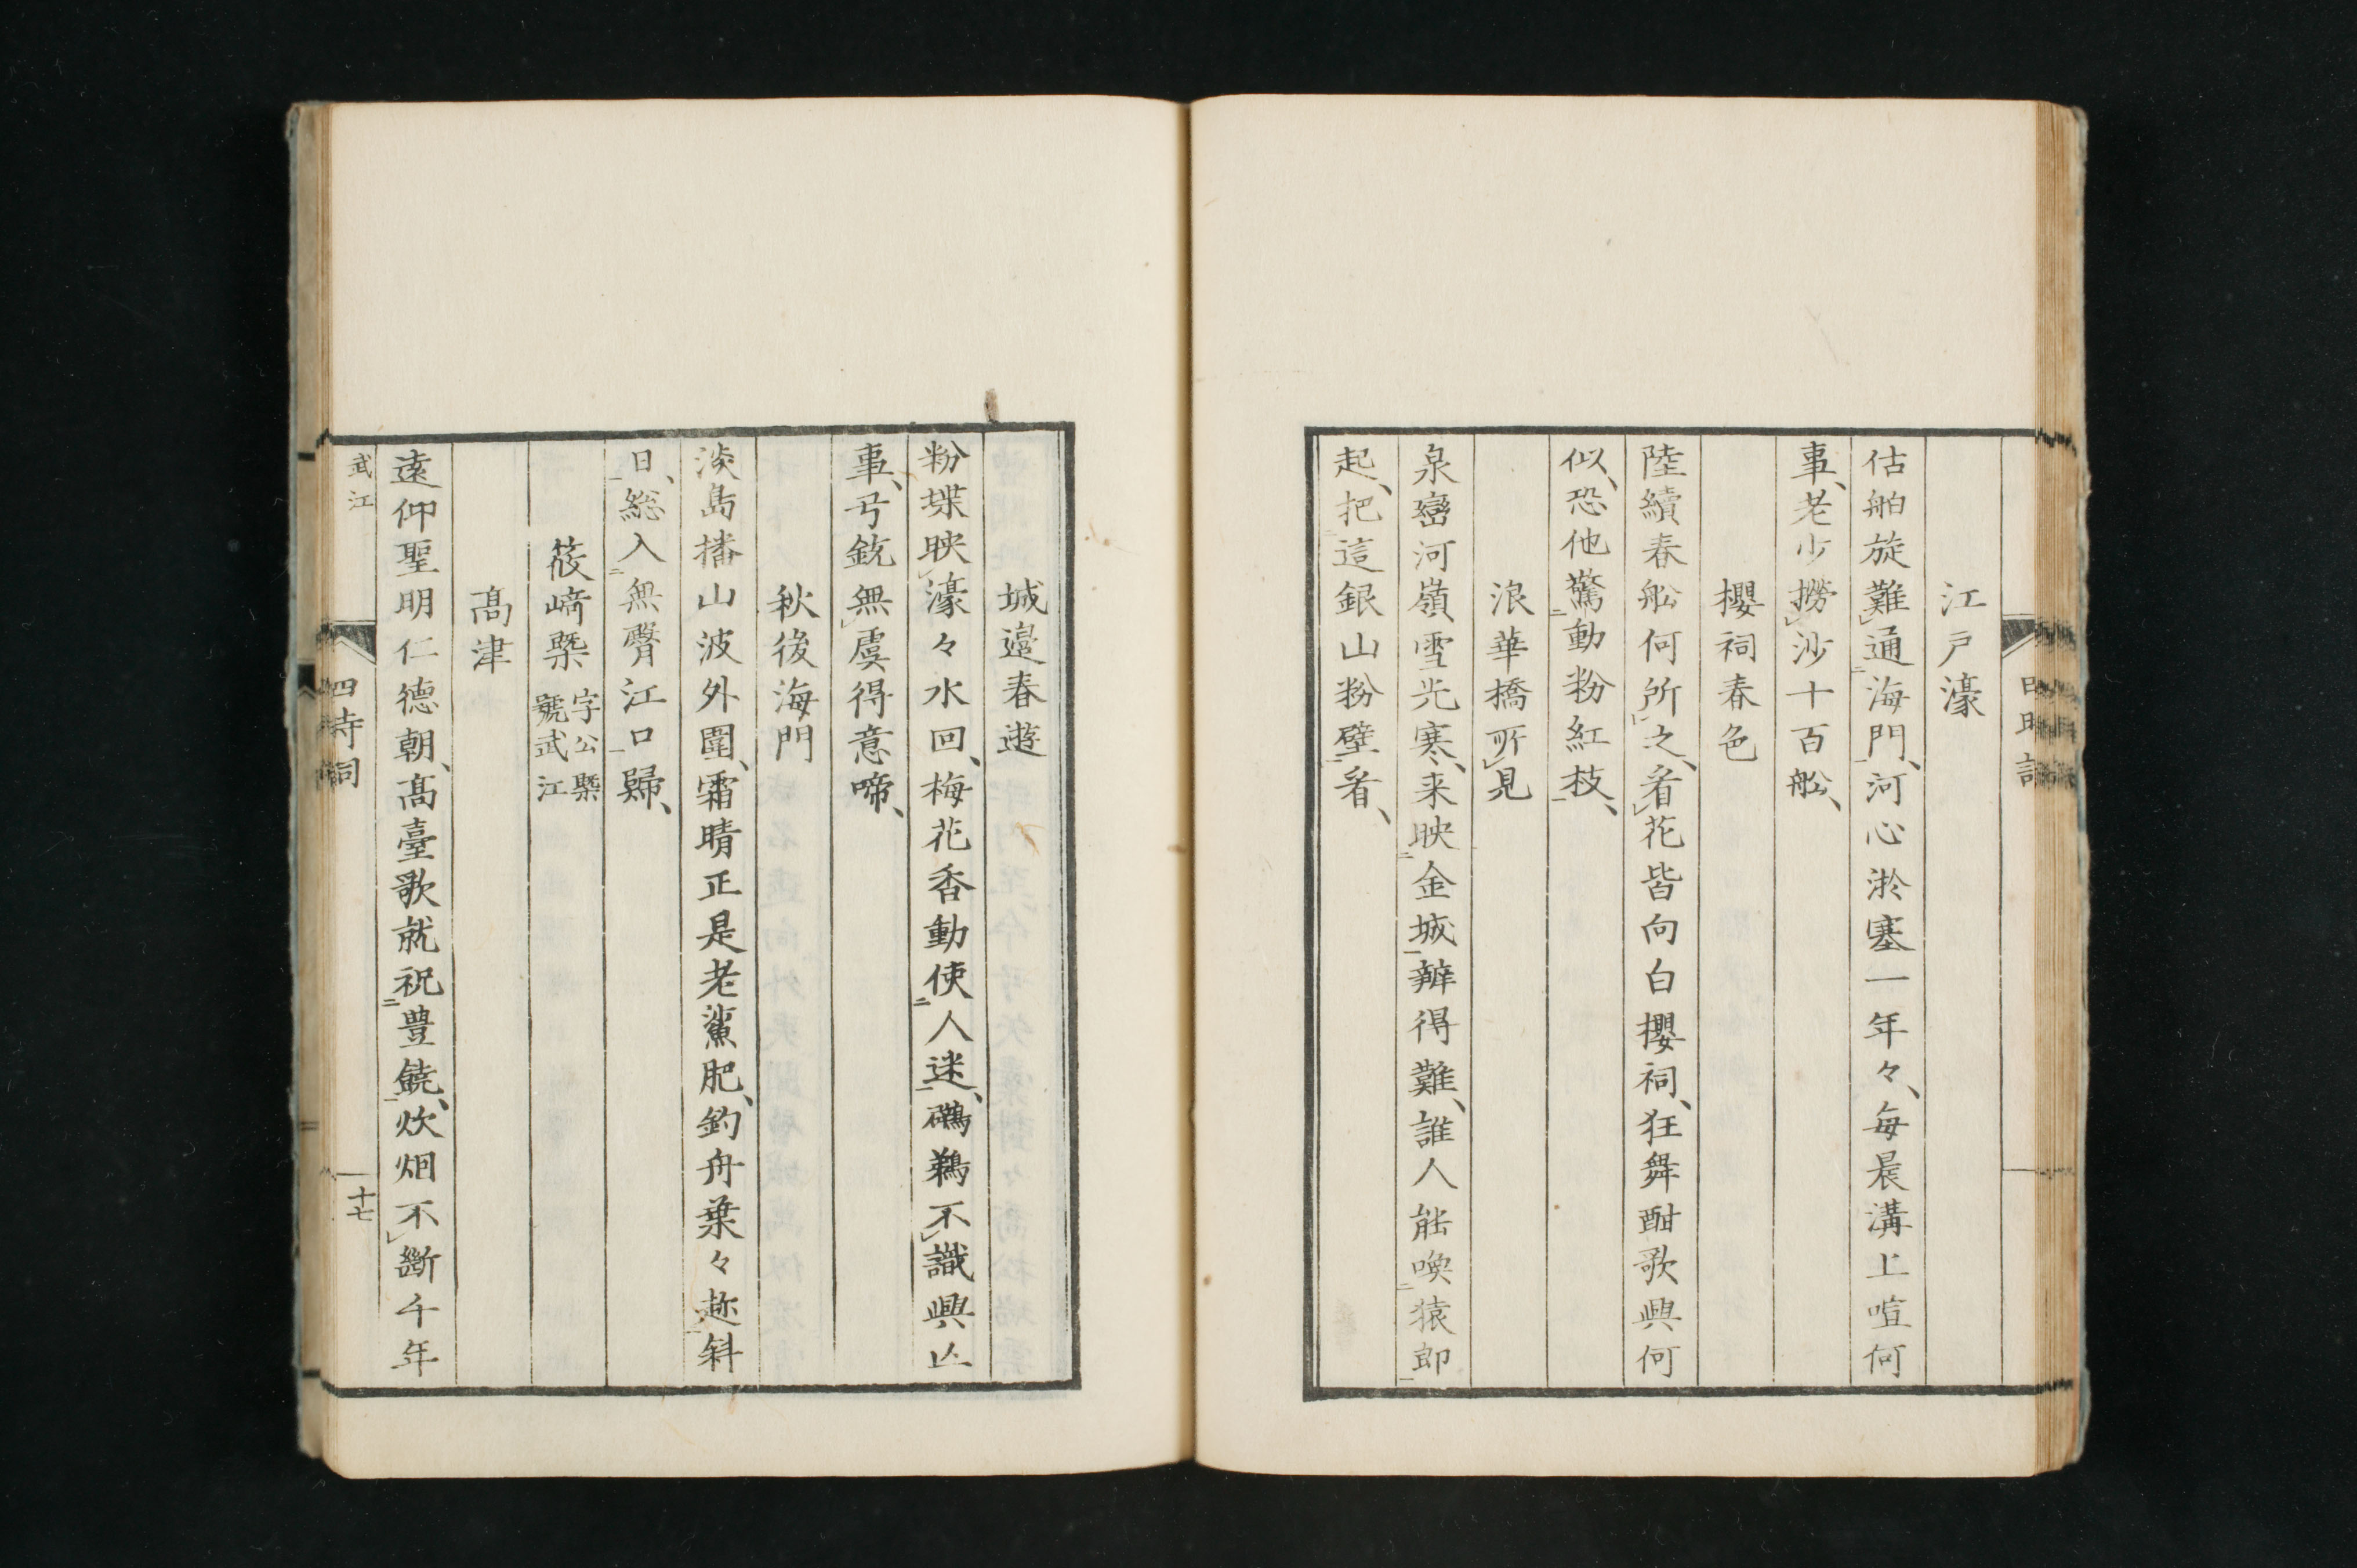 江戸濠
估舶旋難通海門、河心淤塞一年々、每晨溝上喧何
事、老少撈沙十百舩、
櫻祠春色
陸續春舩何所之、看花皆向白櫻祠、狂舞酣歌興何
似、恐他驚動粉紅枝、
浪華橋所見
泉巒河嶺雪光寒、来映金城辨得難、誰人能喚猿郎
起、把這銀山粉壁看、
城邉春遊
粉堞映濠々水回、梅花香動使人迷、鸊鵜不識興亾
事、弓銃無虞得意啼、
秋後海門
淡島播山波外圍、霜晴正是老鯊肥、釣舟葉々趂斜
日、総入無聲江口歸、
筱﨑槩 字公槩
號武江
髙津
遠仰聖明仁德朝、髙臺歌就祝豊饒、炊烟不斷千年
武江
四時詞
十七